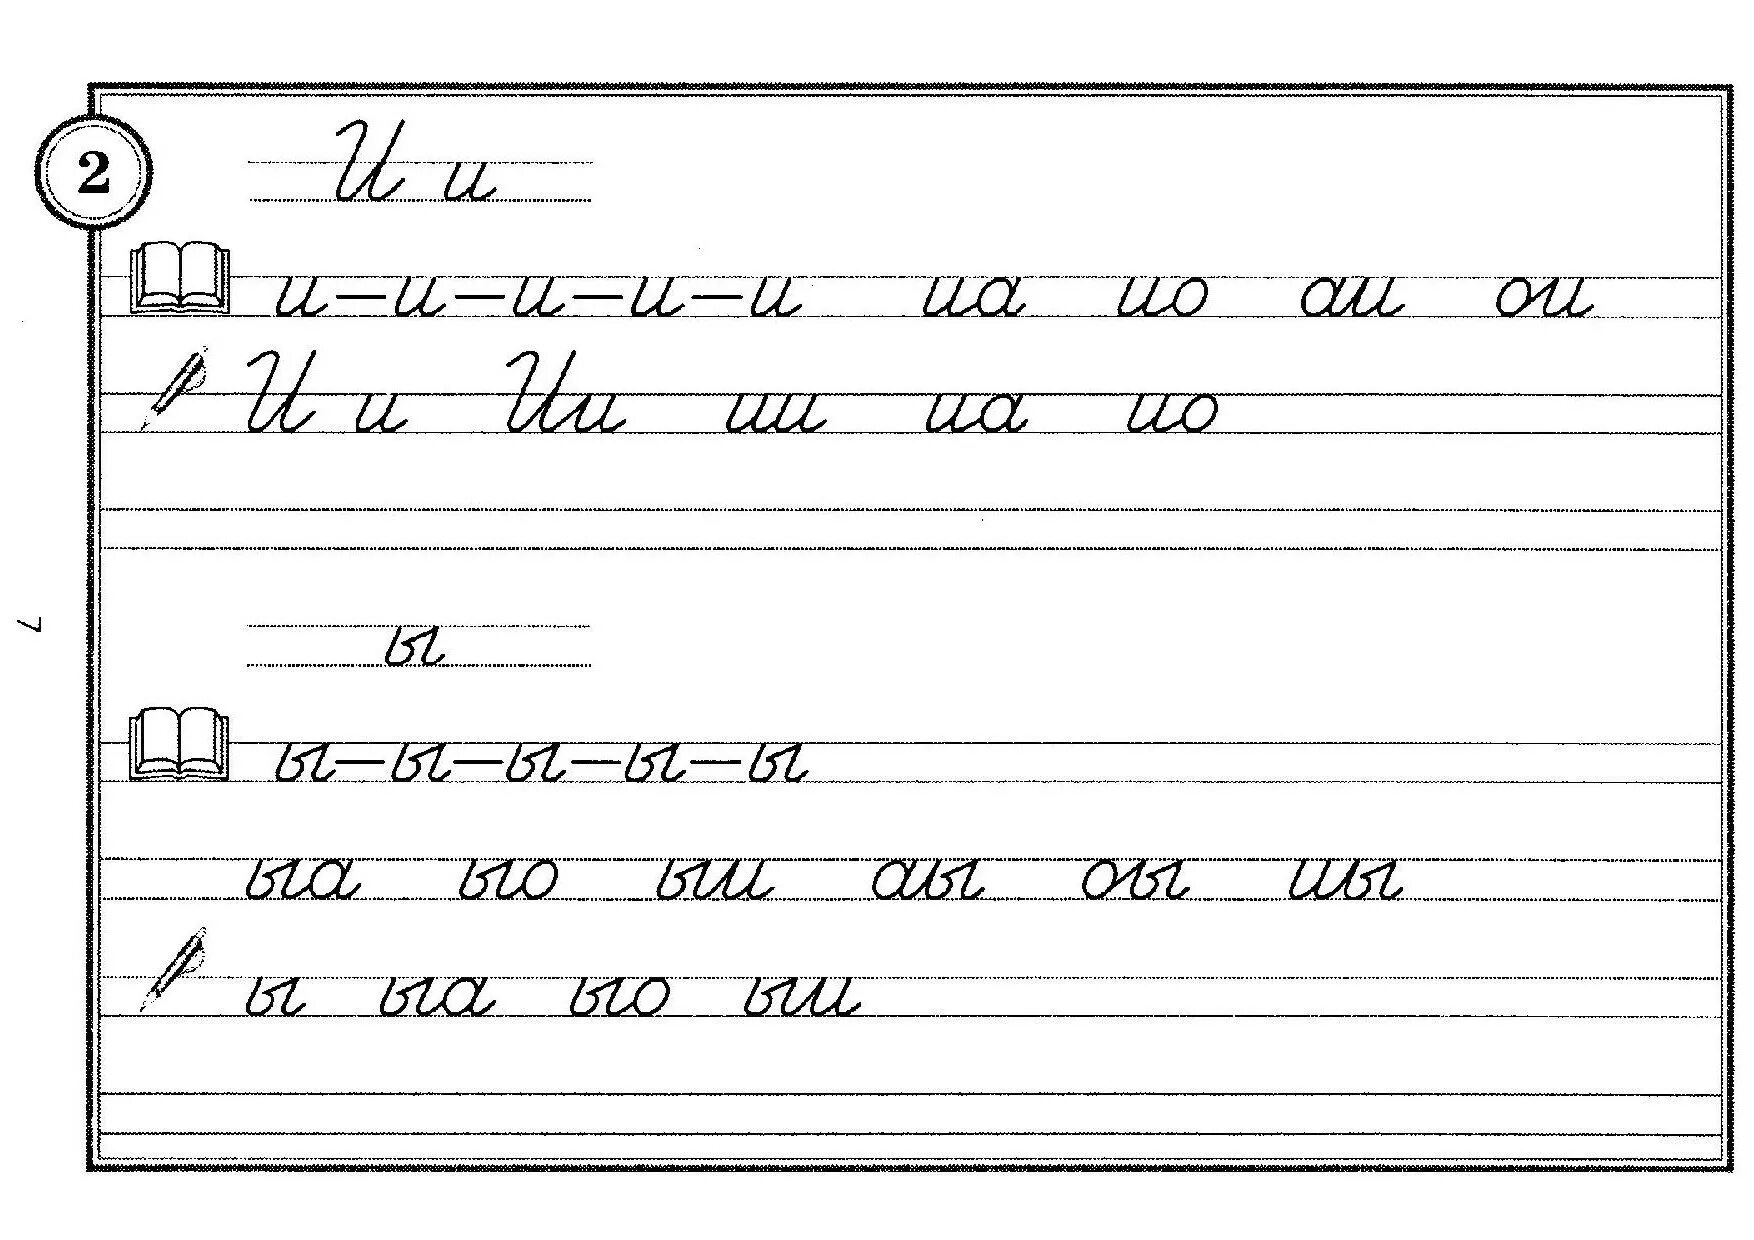 2
И и
и–и–и–и–и иа ио аи ои
И и Ии ии иа ио
ы
ы–ы–ы–ы–ы
ыа ыо ыи аы оы иы
ы ыа ыо ыи
7